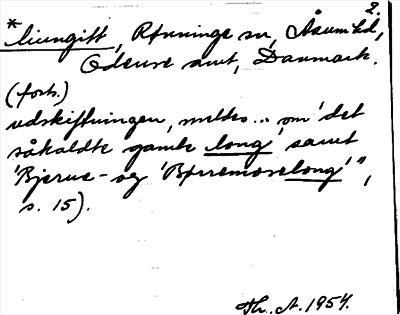 2.
*liungitt, Rønninge sn, Åsum hd,
Odense amt, Danmark.
(forts.)
udskiftningen, meltes... om 'det
såkaldte gamle long' samt
'Bjerne- og 'Børremoselong'",
s. 15).
Th. A. 1954.